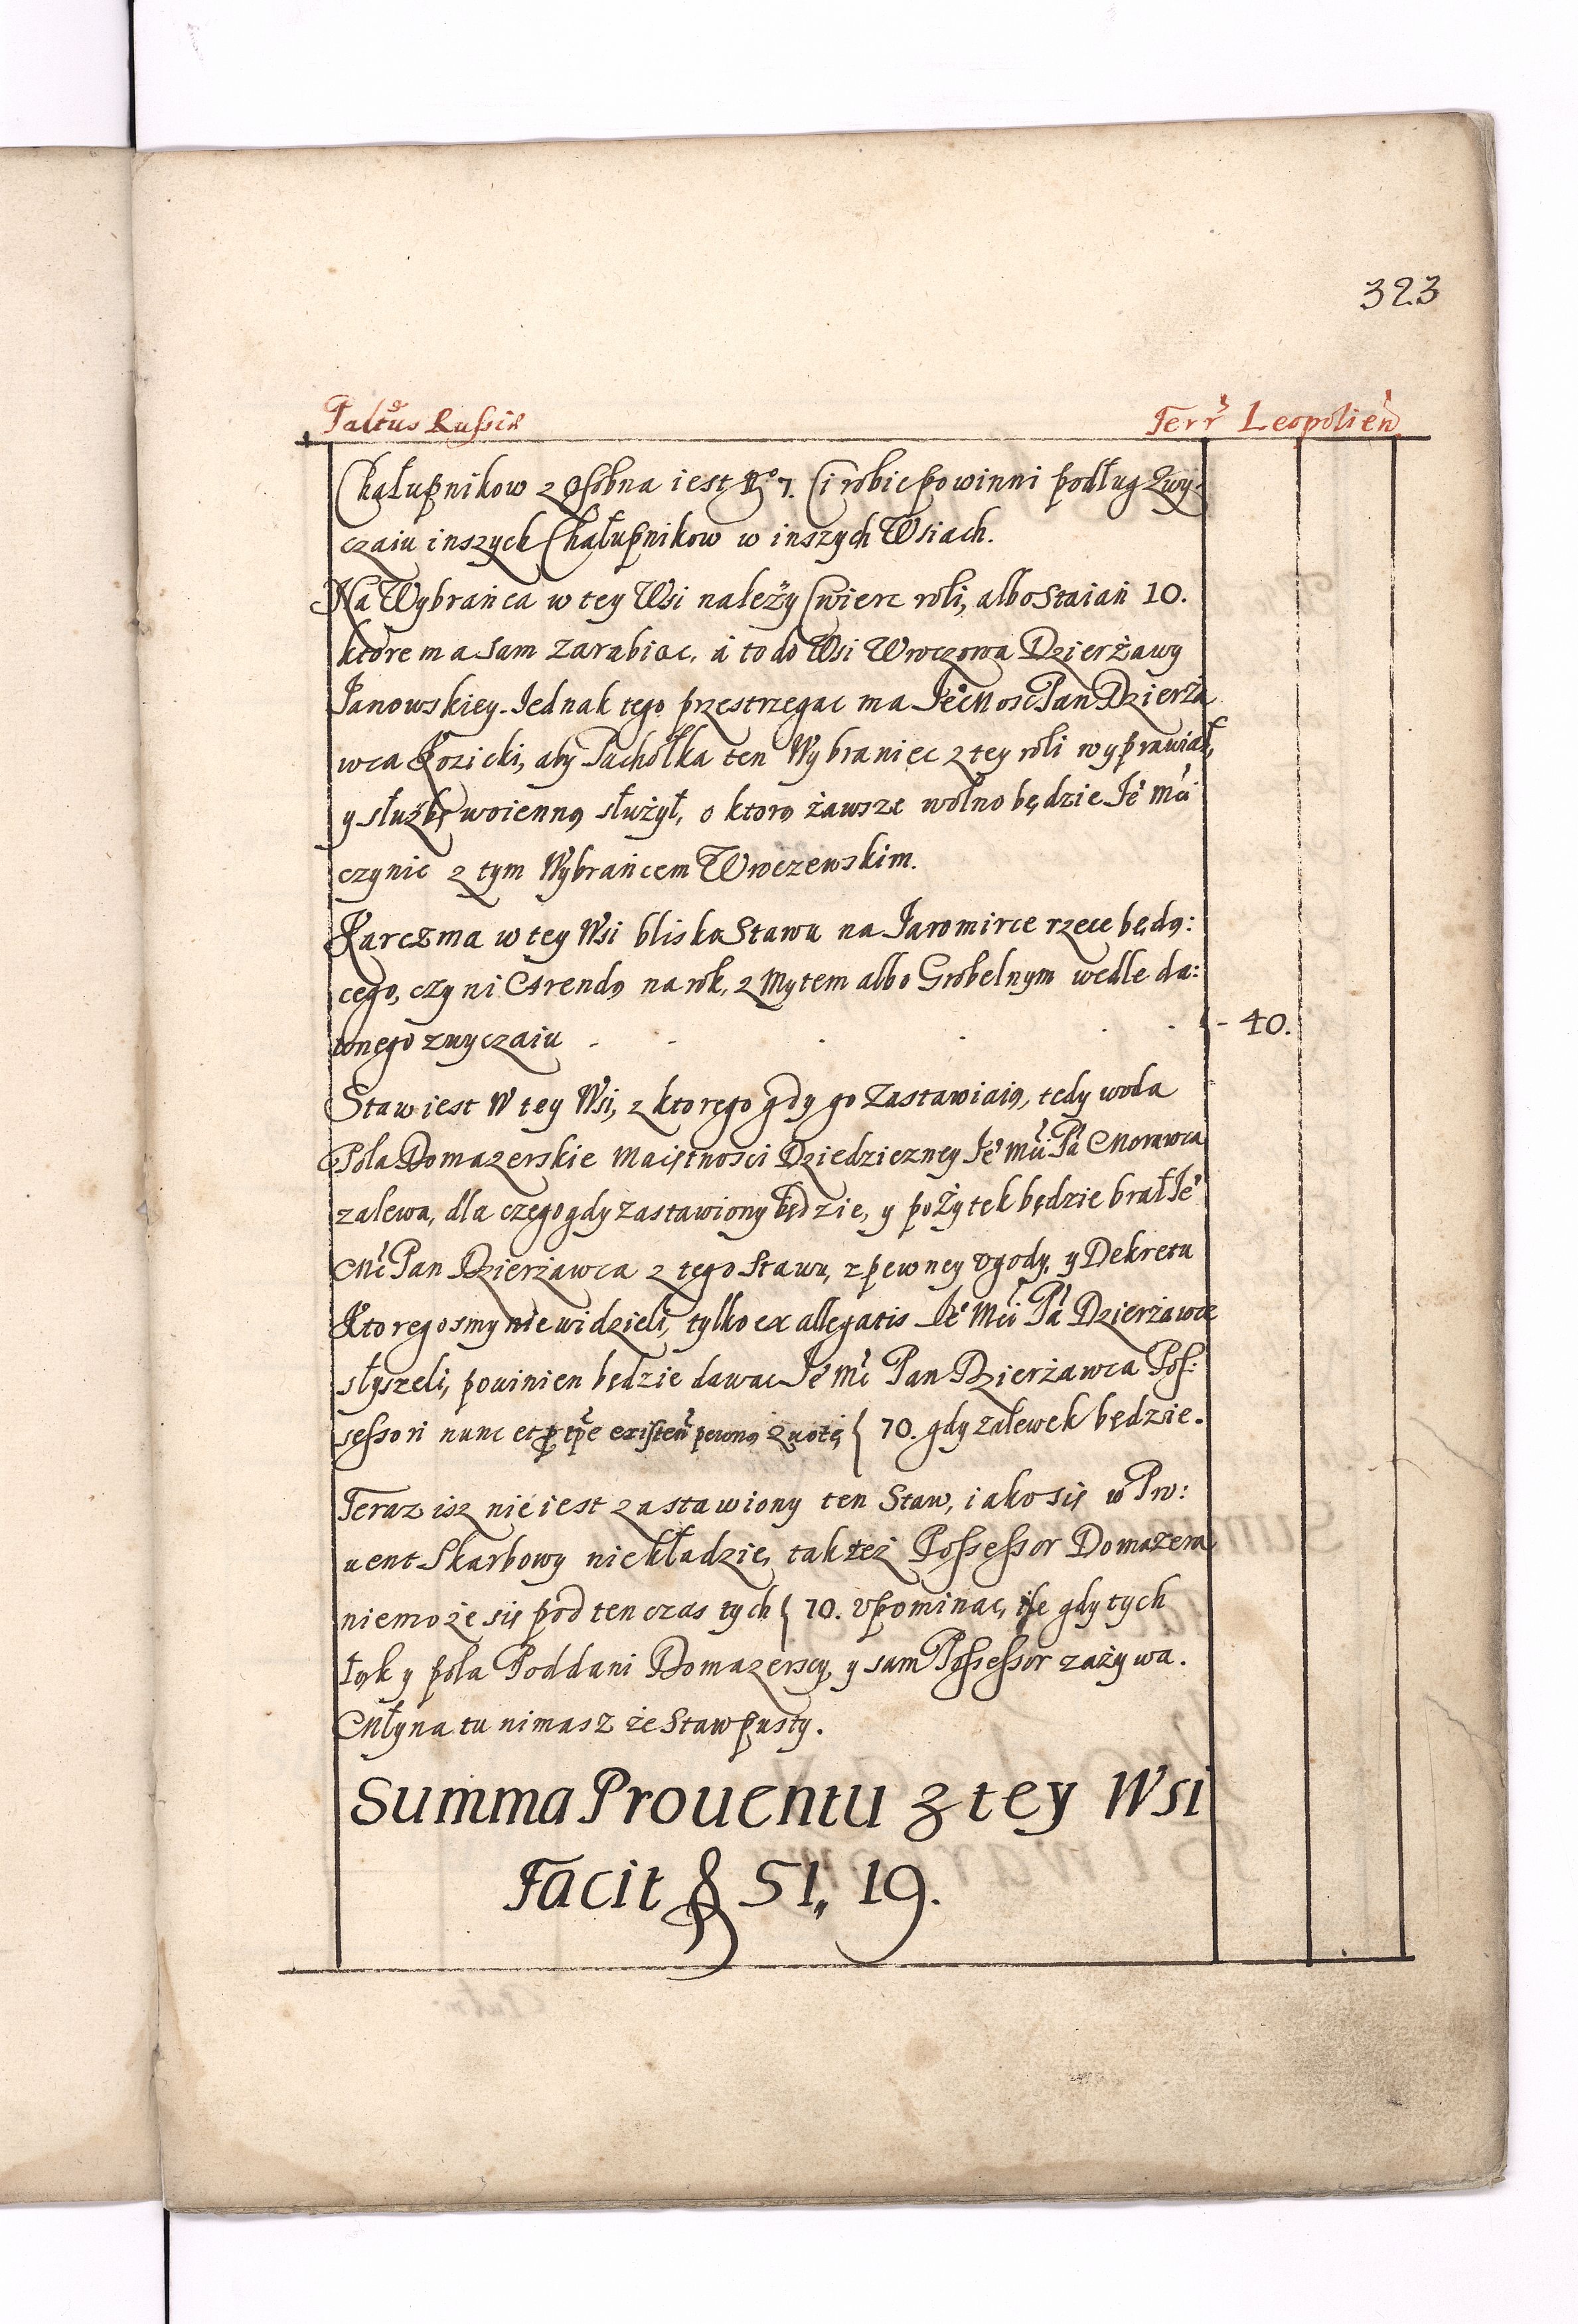 323
Palt⁹us Russiæ Terr Leopolien̄
Chałupnikow z Osobna iest No 7. Ci robić powinni podług Zwy-
czaiu inszych Chałupnikow w inszych Wsiach.
Na Wybrańca w tey Wsi należy Cwierc roli, albo Staiań 10.
ktore ma sam zarabiac, á to do Wsi Wroczowa Dzierżawy
Janowskiey. Jednak tego przestrzegac ma JeoMosc Pan Dzierża
wca Kozicki, aby Pachołka ten Wybraniec z tey roli wyprawiał,
y służbę woienną służył, o ktorą zawsze wolno będzie Jeo Mci
czynic z tym Wybrańcem Wroczewskim.
Karczma w tey Wsi blisko Stawu na Jaromirce rzece będą:
cego, czyni Arendą na rok, z Mytem albo Grobelnym wedle da:
wnego zwyczaiu - - . . . . - 40.
Staw iest w tey Wsi, z ktorego gdy go Zastawiaią, tedy woda
Pola Domazerskie Maiętnosci Dziedziczney Je° Mci Pa Morawca
zalewa, dla czego gdy zastawiony będzie, y pożytek będzie brał Je°
Mc Pan Dzierżawca z tego Stawu, z pewney Vgody, y Dekretu
Ktoregosmy nie widzieli, tylko ex allegatis Je° Mci Pa Dzierżawce
słyszeli, powinien będzie dawac Je° Mc Pan Dzierżawca Pos:
sessori nunc et p tpe existen pewną Quotę 70. gdy zalewek będzie.
Teraz isz nie iest zastawiony ten Staw, iako się w Pro:
uent Skarbowy niekładzie, tak też Possessor Domazera
niemoże się pod ten czas tych 70. vpominac, ile gdy tych
łąk y pola Poddani Domazerscy, y sam Possessor zażywa.
Młyna tu nimasz że Staw pusty.
Summa Prouentu z tey Wsi
Facit 51,, 19.